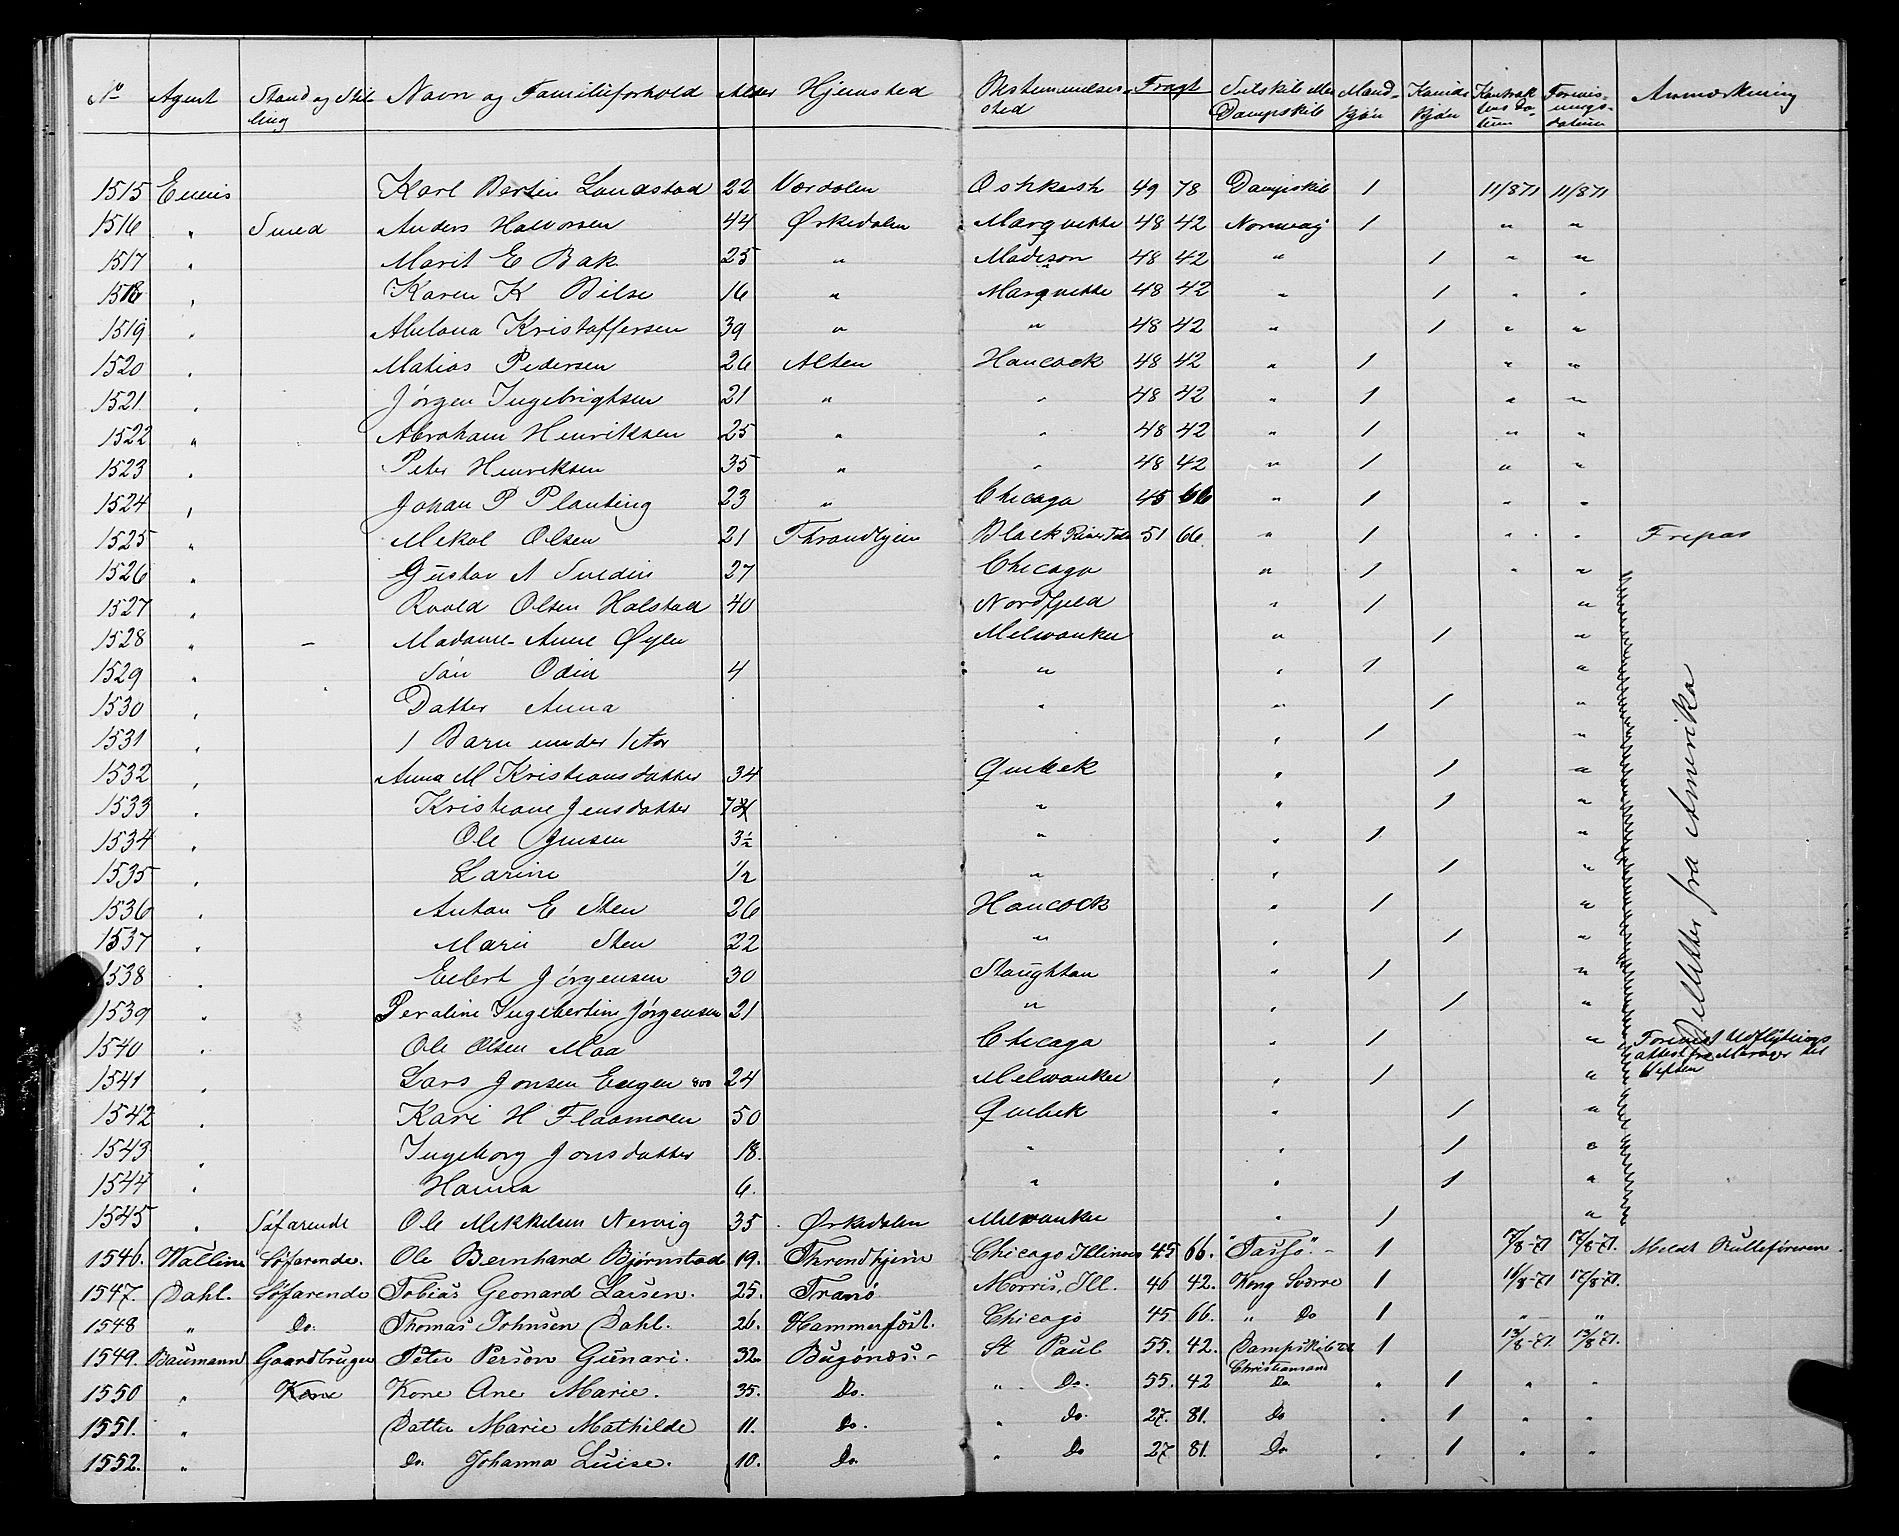 No Agent Stand og Stilling Navn og Familieforhold Alder Hjemsted Bestemmelsessted Fragt Seilskib eller Dampskib Mandkjøn Kvindekjøn Kontraktens Datum Forevisningsdatum Anmærkning
1515 Ennis Karl Bertin Landstad 22 Værdalen Oshkosh 49 78 Dampskib 1 11/871 11/871
1516 " Smed Anders Halvorsen 44 Ørkedalen Marqvette 48 42 Norway 1 " "
1517 " Marit E Bak 25 " Madison 48 42 " 1 " "
1518 " Karen K Bilse 16 " Marqvette 48 42 " 1 " "
1519 " Abelona Kristoffersen 39 " " 48 42 " 1 " "
1520 " Matias Pedersen 26 Alten Hancock 48 42 " 1 " "
1521 " Jørgen Ingebrigtsen 21 " " 48 42 " 1 " "
1522 " Abraham Henriksen 25 " " 48 42 " 1 " "
1523 " Peter Henriksen 35 " " 48 42 " 1 " "
1524 " Johan P Planting 23 " Chicago 45 66 " 1 " "
1525 " Mekal Olsen 21 Throndhjem Black River Fals 51 66 " 1 " " Frepas
1526 " Gustav A Svedin 27 Chicago " 1 " "
1527 " Roald Olsen Halstad 40 Nordfjeld " 1 "
1528 " – Madame Anne Øyen Melwaukee " 1 "
1529 " Søn Odin 4 " " 1 "
1530 " Datter Anna " " 1 "
1531 " 1 Barn under 1 Aar " 1 "
1532 " Anna M Kristiansdatter 34 Quebek " 1 "
1533 " Kristiane Jensdatter 7 " " 1 "
1534 " Ole Jensen 3½ " " 1 "
1535 " Larine ½ " " 1 "
1536 " Anton E Sten 26 Hancock " 1 "
1537 " Marie Sten 22 " " 1 "
1538 " Eilert Jørgensen 30 Staughton " 1 "
1539 " Peraline Ingebertine Jørgensen 21 " " 1 "
1540 " Ole Olsen Maa Chicago " 1 " Forevist Udflytnings
attest fra Meraker til
Vefsen
1541 " Lars Jonsen Engen 24 Melwaukee " 1 "
1542 " Kari H Flaamoen 50 Quebek " 1 "
1543 " Ingeborg Jonsdatter 18. " " 1 "
1544 " Hanna 6. " " 1 "
Billetter fra Amerika
1545 " Søfarende Ole Mekkelsen Nervig 35 Ørkedalen Melwaukee " 1 "
1546. Walline Søfarende. Ole Bernhard Bjørnstad 19. Throndhjem Chicago Illinois 45 66. "Tasso" 1 17/8-71 17/8-71. Meldt Rulleføreren.
1547. Dahl. Søfarende Tobias Leonard Larsen. 25. Tranø Morris, Ill. 46 42. Kong Sverre 1 16/8-71 17/8-71.
1548 " Do. Thomas Johnsen Dahl. 26. Hammerfest. Chicago 45 66. " Do 1 " "
1549. Baumann Gaardbruger Peter Person Gunari. 32 Bugønes. St Paul 55. 42. Dampskibet Christiansand 1 13/8-71. 13/8-71.
1550 " Kone Kone Ane Marie. 35. Do. " Do. 55. 42 Do " 1 " "
1551. " Datter Marie Mathilde 11. Do. " Do. 27. 81. Do " 1 " "
1552. " Do. Johanna Luise. 10. Do " Do 27 81. Do " 1 " "